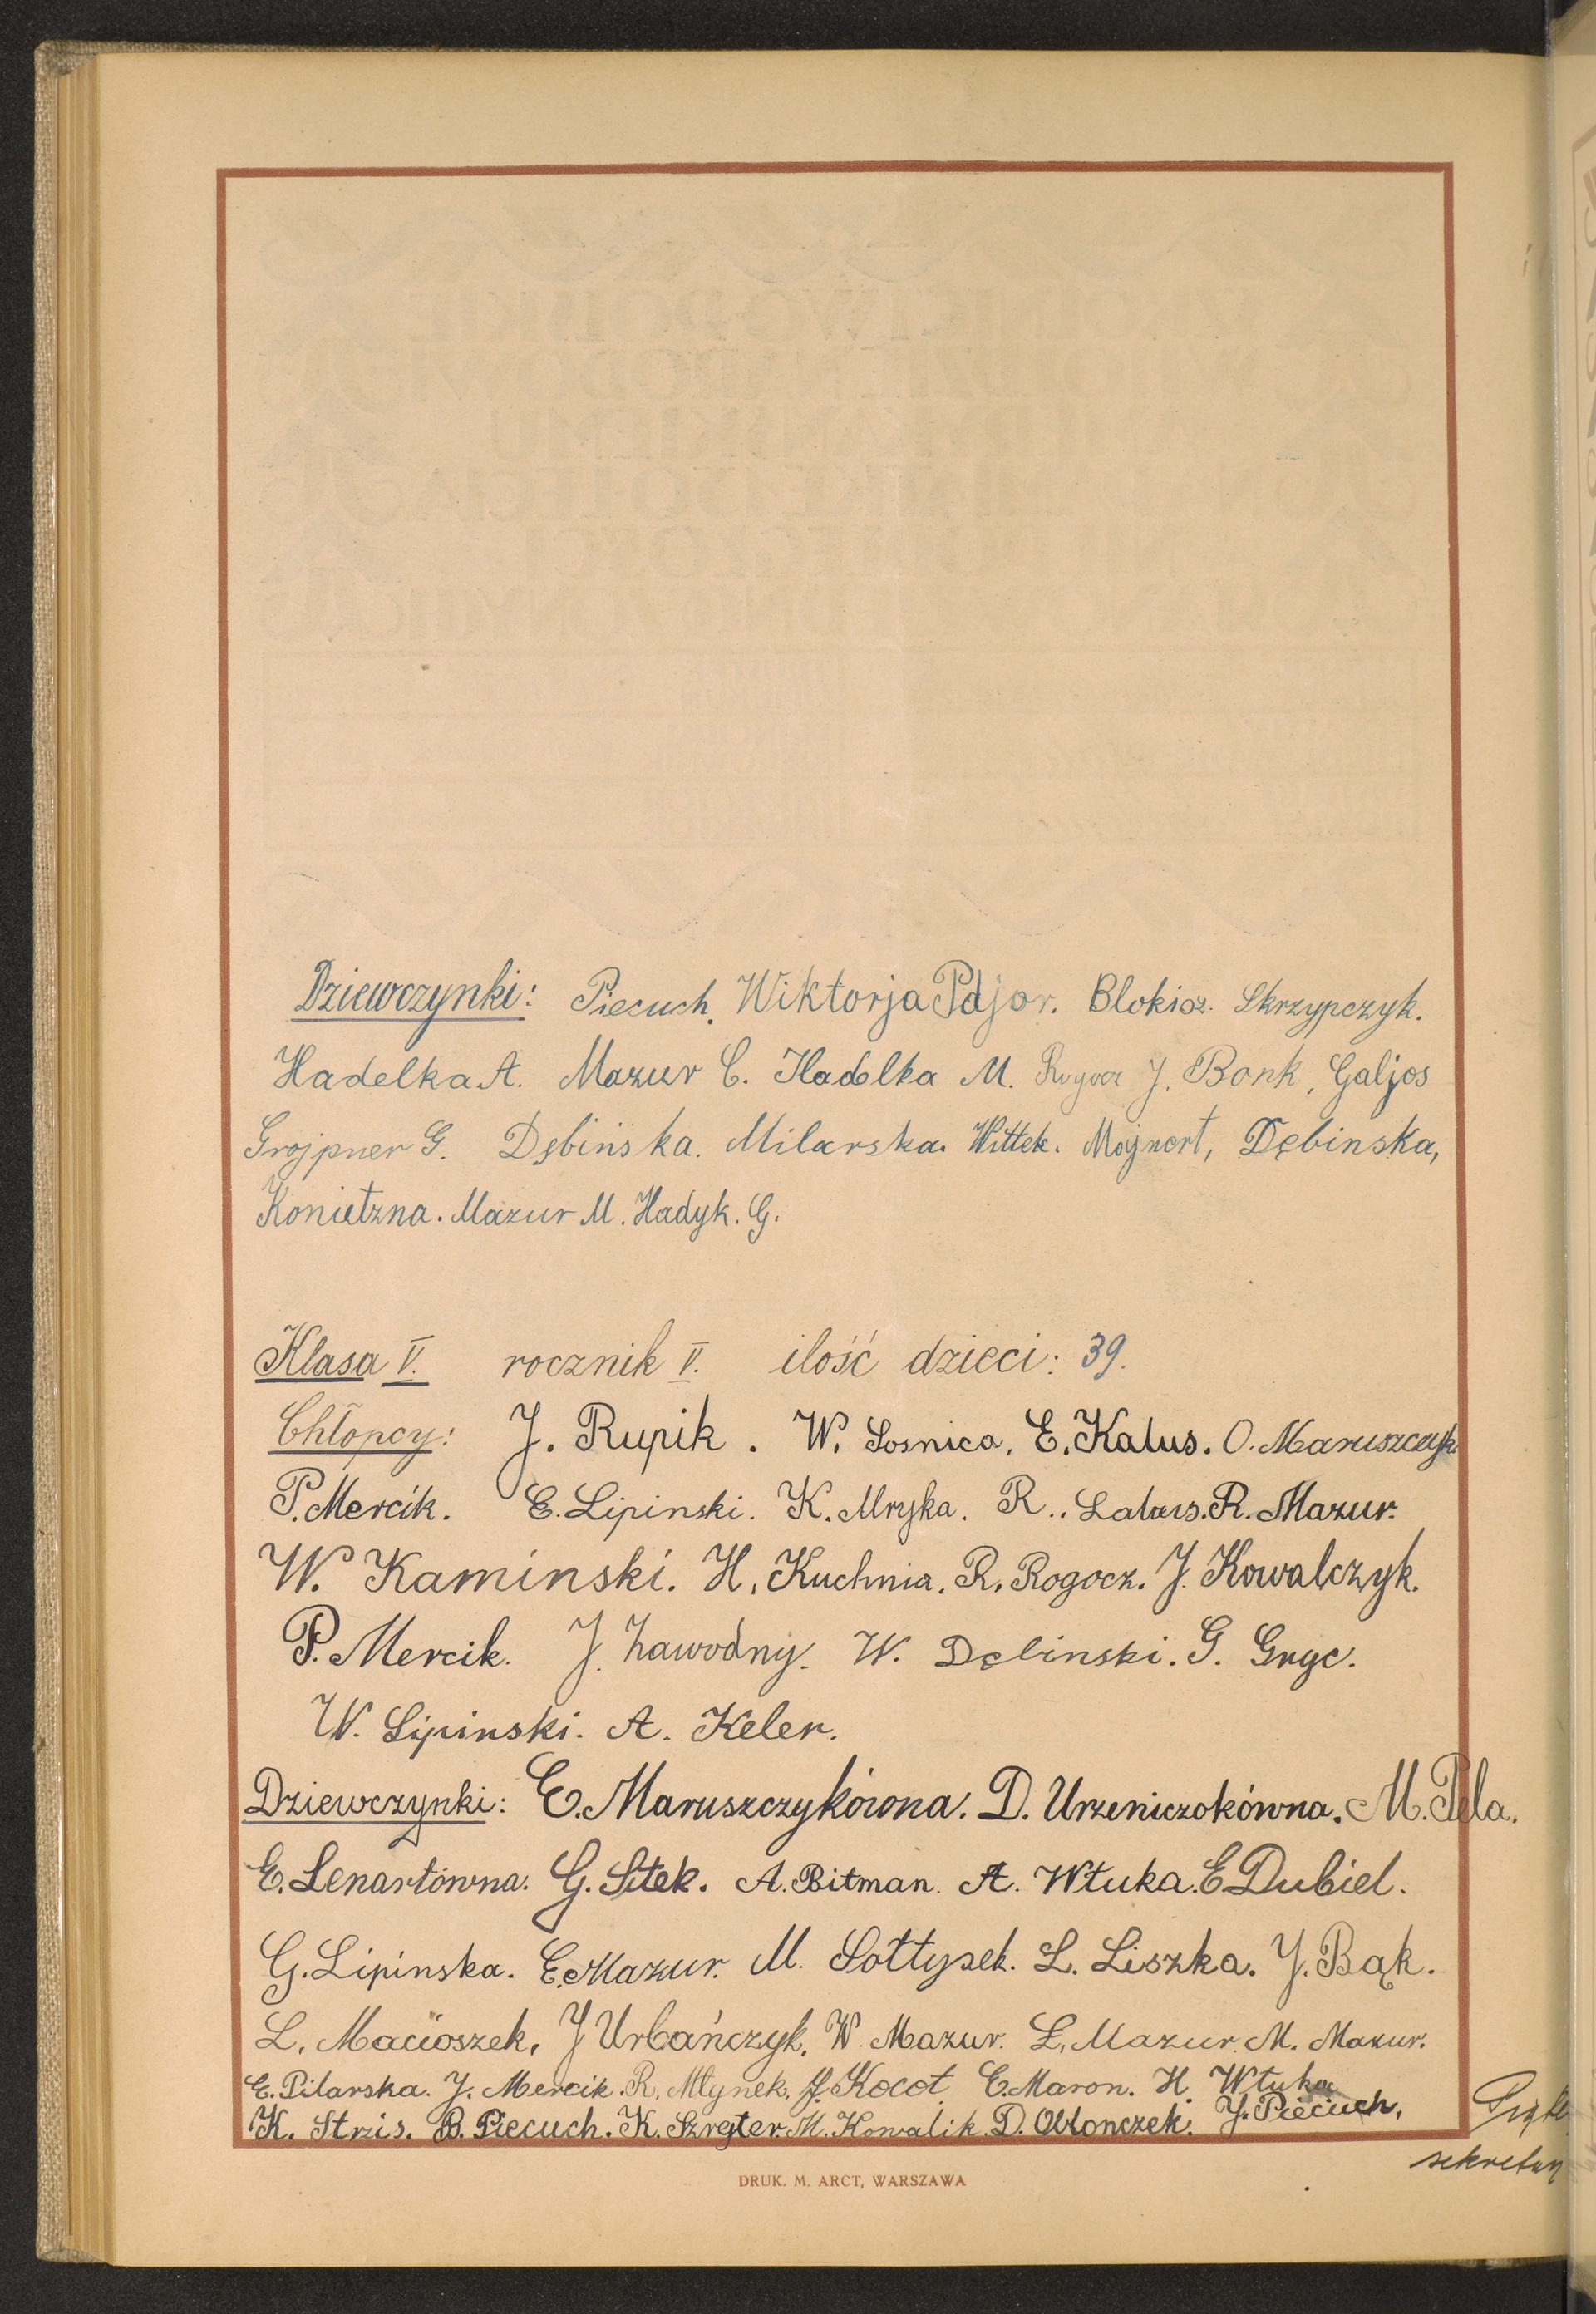 Dziewczynki: Piecuch. Wiktorja Pdjor. Blokisz. Skrzypczyk.
Hadelka A. Mazur C. Hadelka M. J. Bonk, Galjos
Grojpner G. Dębińska. Milarska. Wittek. Majnert, Dębinska,
Konietzna. Mazur M. Hadyk. G.
Klasa V. rocznik V. ilość dzieci: 39.
Chłopcy: J. Rupik. W. Sosnica, E. Kalus. O. Maruszczyk
P. Mercik. E. Lipinski. K. Mryka. R.. R. Mazur.
W. Kaminski. H. Kuchnia. R. Rogocz. J. Kowalczyk.
P. Mercik. J. Zawodny. W. Dębinski. G. Gryc.
W. Lipinski. A. Keler.
Dziewczynki: E. Maruszczykówna. D. Urzeniczokówna. M. Pela.
E. Lenartówna. G. Sitek. A. Bitman. A. Wtuka. E Dubiel.
G. Lipinska. E. Mazur. M. Sołtysek. L. Liszka. J. Bąk.
L. Macioszek. J Urbańczyk. W. Mazur. L. Mazur. M. Mazur.
E. Pilarska. J. Mercik. R. Młynek. J. Kocot E. Maron. H. Wtuka
K. Strzis. B. Piecuch. K. Szrejter. M. Kowalik. D. Obłonczek. J. Piecuch.
sekretarz
DRUK. M. ARCT, WARSZAWA